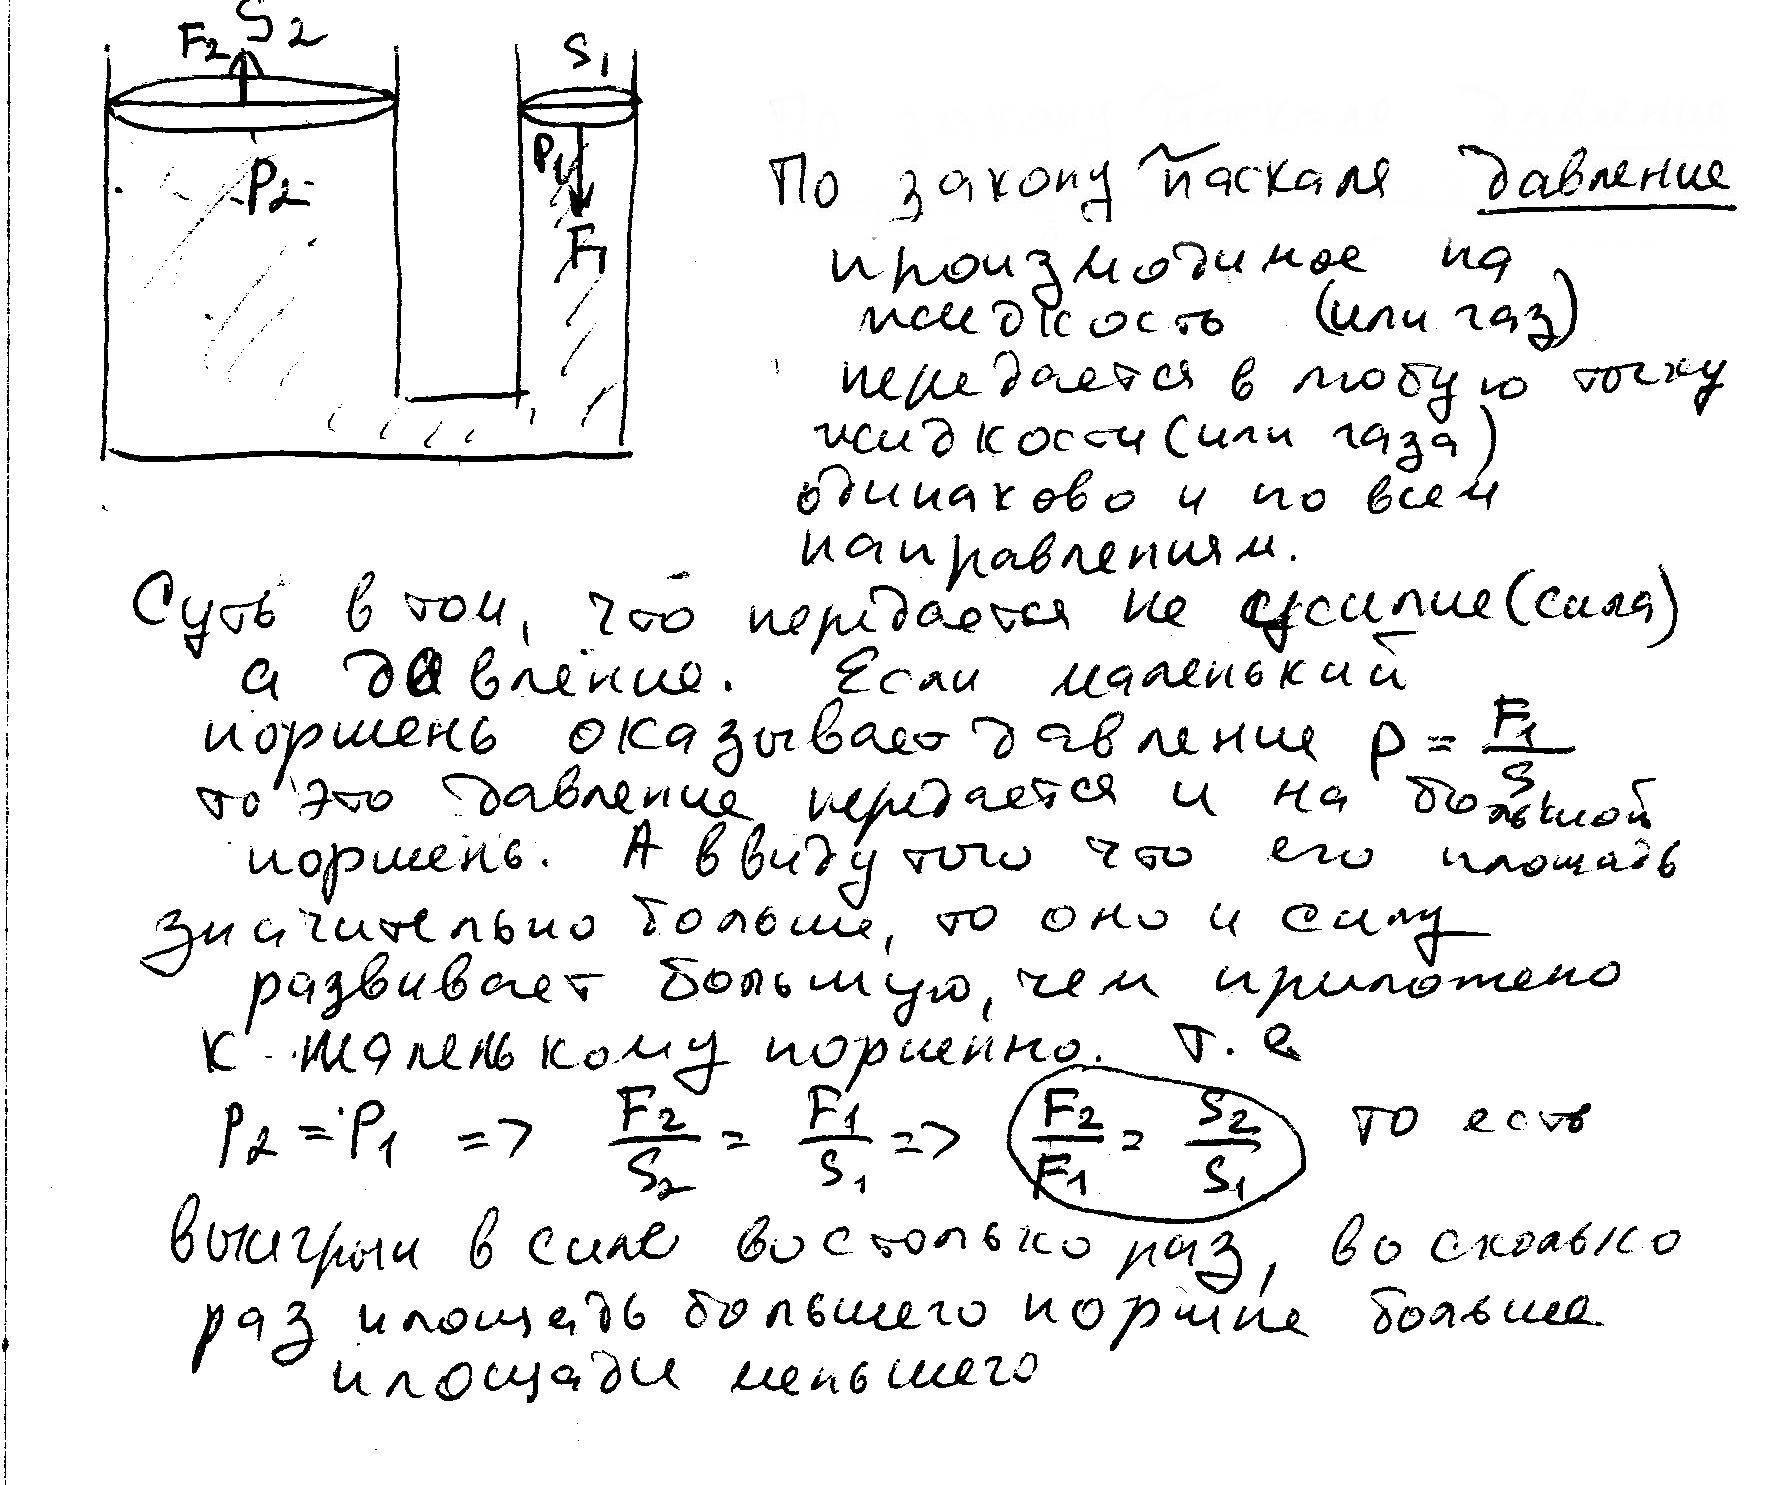 F2 S2
S1
P2
P1
F1
По закону Паскаля давление
производимое на
жидкость (или газ)
передается в любую точку
жидкости (или газа)
одинаково и по всем
направлениям.
Суть в том, что передается не усилие (сила)
а давление. Если маленький
поршень оказывает давление P = F1/S
то это давление передается и на большой
поршень. А ввиду того что его площадь
значительно больше, то оно и силу
развивает большую, чем приложено
к маленькому поршню. т. е
P2 = P1 => F2/S2 = F1/S1 => F2/F1 = S2/S1 то есть
выигрыш в силе во столько раз, во сколько
раз площадь большего поршня больше
площади меньшего